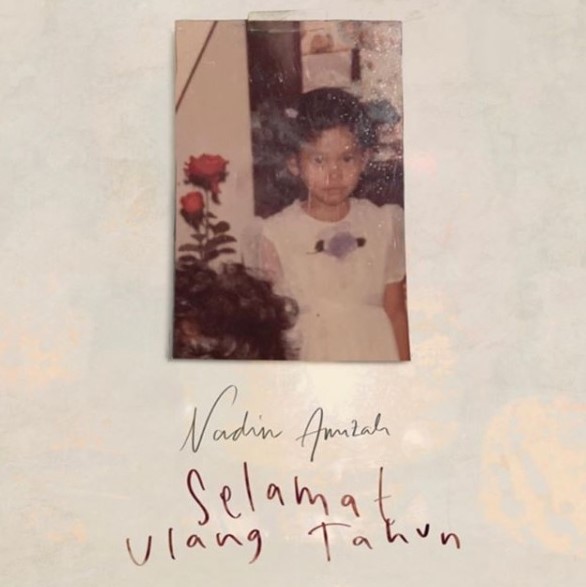 Nadin Amizah
Selamat
Ulang Tahun